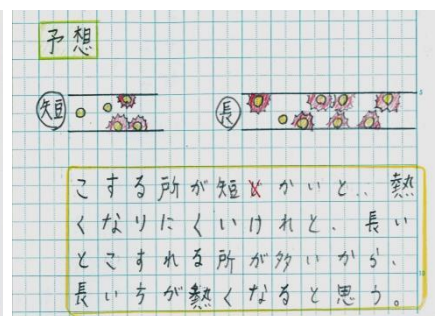 予想
短 長
こする所が短かいと、熱
くなりにくいけれど、長い
とこすれる所が多いから、
長いちが熱くなると思う。